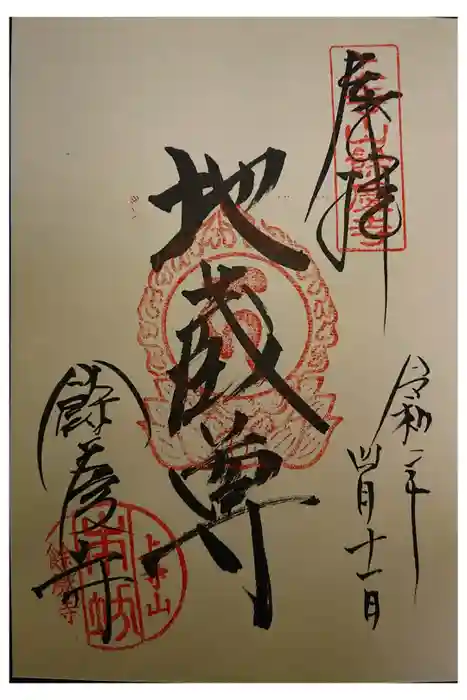 奉拝
令和二年
四月十一日
地蔵尊
餘慶寺
上寺山
餘慶寺